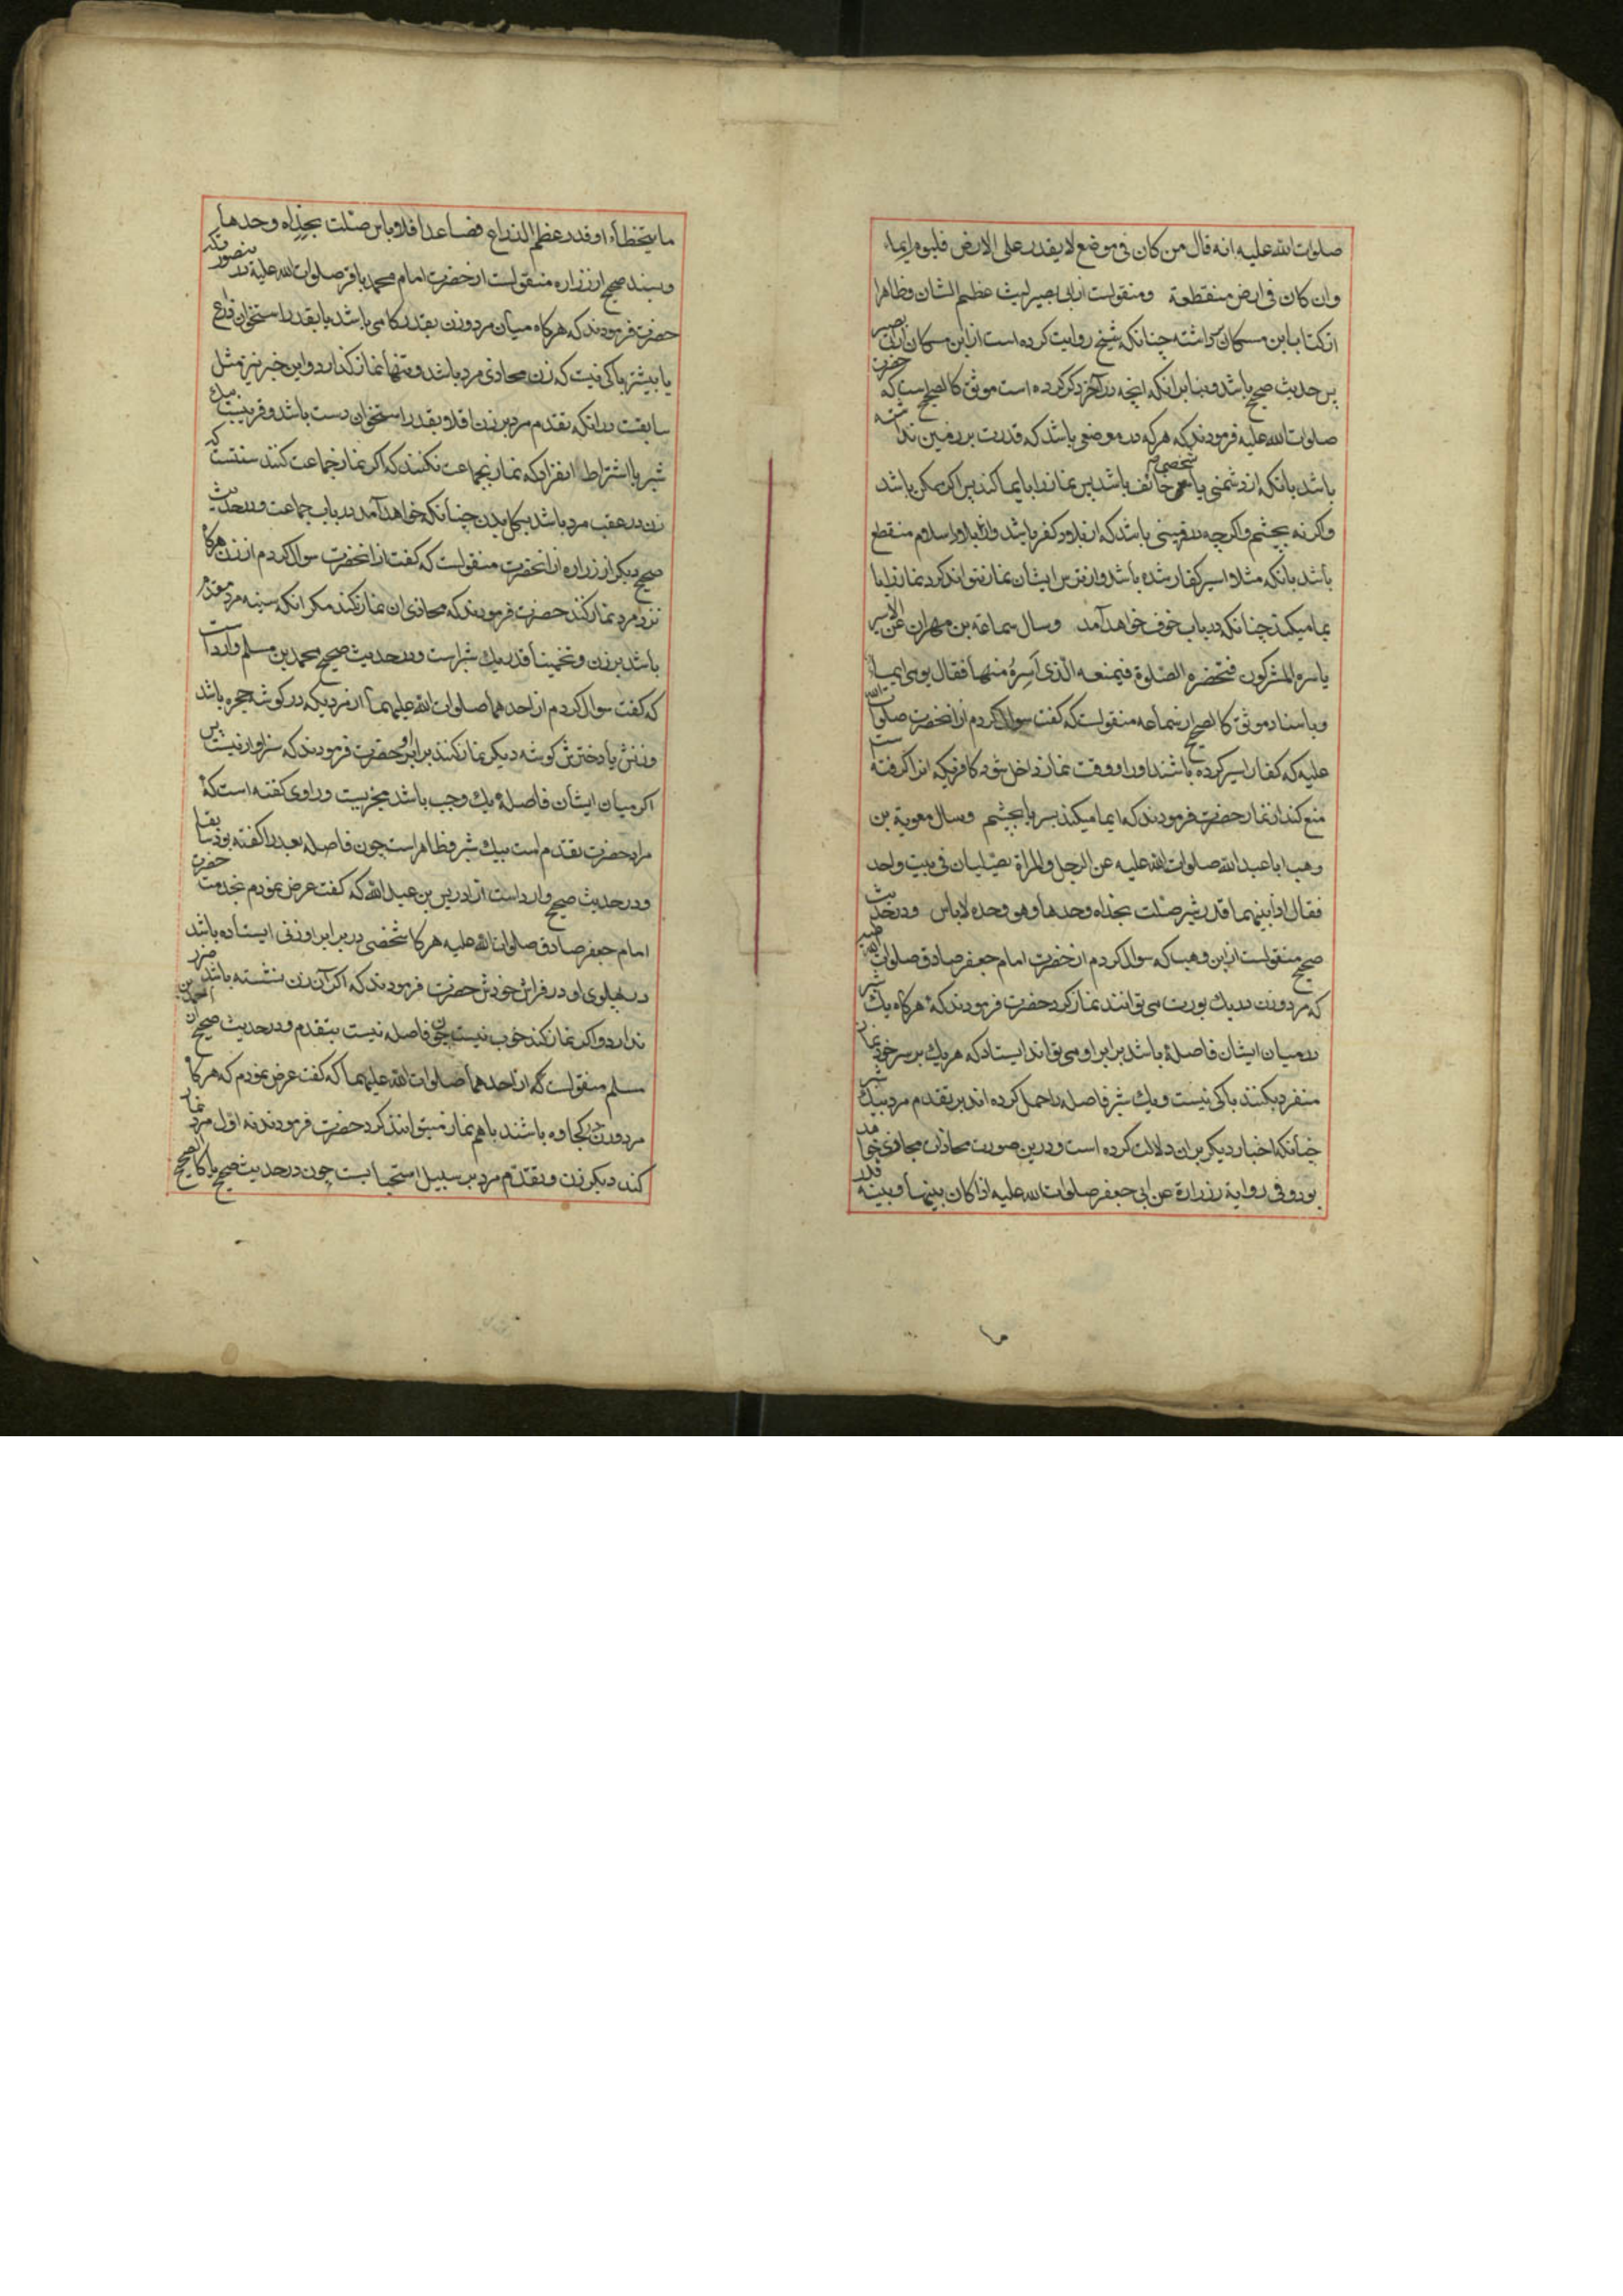 صلوات الله عليه انه قال من كان فى موضع لا يقدر على الارض فليوم ايماء
وان كان فى ارض منقطعة ومنقولست از ابى بصير ليث عظيم الشان وظاهرا
از كتاب ابن مسكان برداشته چنانكه شيخ روايت كرده است از ابن مسكان از ابى بصير
پس حديث صحيح باشد و بنا برانكه انچه در آخر ذكر كرده است موثق كالصحيح است كه حضرت
صلوات الله عليه فرمودند كه هر كه در موضعى باشد كه قدرت بر زمين نداشته
باشد بانكه از دشمنى يا شخصى خائف باشد پس نماز را با ايما كند بسر اكر ممكن باشد
واكر نه بچشم واكرچه در زمينى باشد كه از بلاد كفر باشد واز بلاد اسلام منقطع
باشد بانكه مثلا اسير كفار شده باشد واز ترس ايشان نماز نتواند كرد نماز را با
يما ميكند چنانكه در باب خوف خواهد آمد وسال سماعة بن مهران عن الاسير
ياسره المشركون فتحضره الصلوة فيمنعه الذى اسره منها فقال يومى ايماء
وباسناد موثق كالصحيح از سماعه منقولست كه كفت سوال كردم از انحضرت صلوات الله
عليه كه كفار اسير كرده باشند اورا ووقت نماز داخل شود كافريكه اورا كرفته است
منع كند از نماز حضرت فرمودند كه ايما ميكند بسر يا بچشم وسال معوية بن
وهب ابا عبد الله صلوات الله عليه عن الرجل والمراة يصليان فى بيت واحد
فقال اذا بينهما قدر شبر صلت بحذاه وحدها وهو وحده لا باس ودر حديث
صحيح منقولست از ابن وهب كه سوال كردم از حضرت امام جعفر صادق صلوات الله عليه
كه مرد وزن در يك بورت مى توانند نماز كرد حضرت فرمودند كه هر كاه يك شبر
در ميان ايشان فاصله باشد برابر او مى تواند ايستاد كه هر يك بر سر خود نماز
منفرد بكنند باكى نيست ويك شبر فاصله را حمل كرده اند بر تقدم مرد بيك شبر
چنانكه اخبار ديكر بر ان دلالت كرده است ودرين صورت محاذات مجازى خواهد
بود وفى رواية زرارة عن ابى جعفر صلوات الله عليه اذا كان بينها وبينه قدر
ما
ما يتخطاء او قدر عظم الذراع فصاعدا فلا باس صلت بحذاه وحدها
وبسند صحيح از زراره منقولست از حضرت امام محمد باقر صلوات الله عليه
حضرت فرمودند كه هر كاه ميان مرد وزن بقدر كامى باشد يا بقدر استخوان ذراع
يا بيشتر باكى نيست كه زن محاذى مرد باشد وتنها نماز كذارد واين خبر نيز مثل
سابقست در انكه تقدم مرد بر زن اقلا بقدر استخوان دست باشد و قريبست
شبر با اشتراط انفراد كه نماز بجماعت نكنند كه اكر نماز جماعت كنند سنتست كه
زن در عقب مرد باشد بكل بدن چنانكه خواهد آمد در باب جماعت ودر حديث
صحيح ديكر از زراره از انحضرت منقولست كه كفت از انحضرت سوال كردم از زن هر كاه
نزد مرد نماز كند حضرت فرمودند كه محاذى ان نماز نكند مكر انكه سينه مرد مقدم
باشد بر زن وتخمينا قدر يك شبر است ودر حديث صحيح محمد بن مسلم وارد است
كه كفت سوال كردم از احدهما صلوات الله عليهما از مرديكه در كوشه حجره باشد
وزنش يا دخترش كوشه ديكر نماز كنند برابر او حضرت فرمودند كه سزاوار نيست پس
اكر ميان ايشان فاصله يك وجب باشد مجزيست وراوى كفته است كه
مراد حضرت تقدم است بيك شبر وظاهر است چون فاصله بعد را كفته بود
ودر حديث صحيح وارد است از ادريس بن عبد الله كه كفت عرض نمودم بخدمت حضرت
امام جعفر صادق صلوات الله عليه هر كاه شخصى در برابر او زنى ايستاده باشد
در پهلوى او در فراش خودش حضرت فرمودند كه اكر آن زن نشسته باشد ضرر
ندارد واكر نماز كند خوب نيست چون فاصله نيست بتقدم ودر حديث صحيح از محمد بن
مسلم منقولست كه از احدهما صلوات الله عليهما كه كفت عرض نمودم كه هر كاه
مرد وزن در كجاوه باشند با هم نماز ميتوانند كرد حضرت فرمودند نه اول مرد نماز
كند ديكر زن وتقدم مرد بر سبيل استحبابست چون در حديث صحيح يا كالصحيح